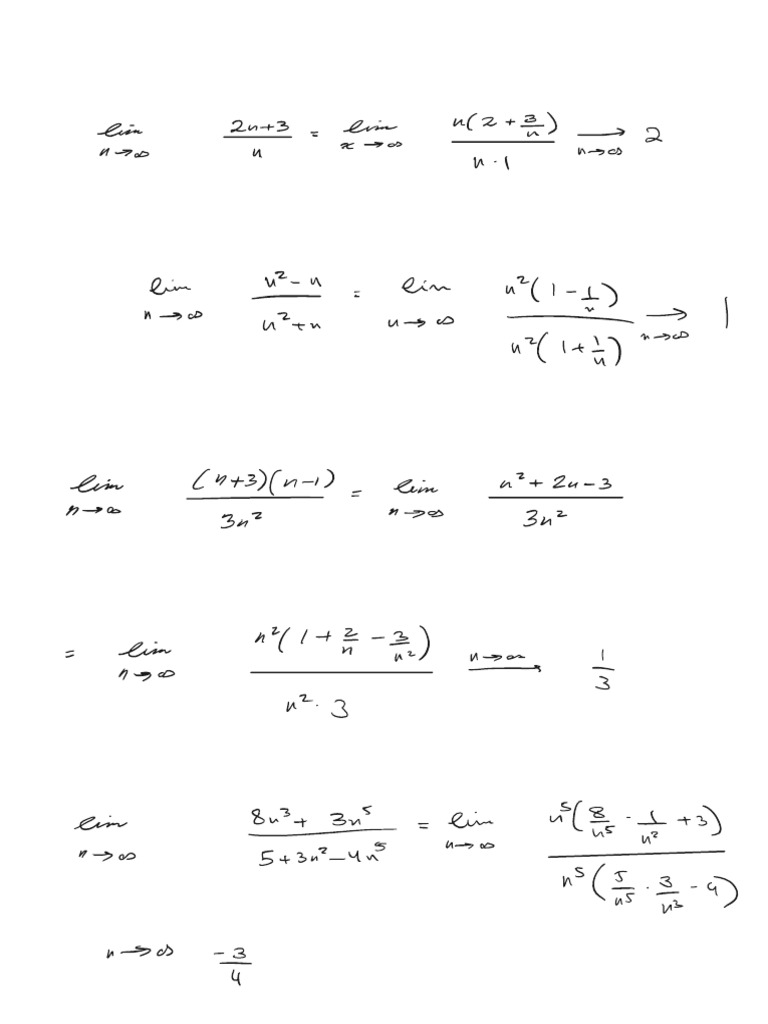 lim n→∞ (2n+3)/n = lim x→∞ n(2 + 3/n)/(n·1) ⟶ n→∞ 2
lim n→∞ (n² − n)/(n² + n) = lim n→∞ n²(1 − 1/n)/(n²(1 + 1/n)) ⟶ n→∞ 1
lim n→∞ (n+3)(n−1)/(3n²) = lim n→∞ (n² + 2n − 3)/(3n²)
= lim n→∞ n²(1 + 2/n − 3/n²)/(n²·3) n→∞ ⟶ 1/3
lim n→∞ (8n³ + 3n⁵)/(5 + 3n² − 4n⁵) = lim n→∞ n⁵(8/n⁵ · 1/n² + 3)/(n⁵(5/n⁵ · 3/n³ − 4))
n→∞ −3/4